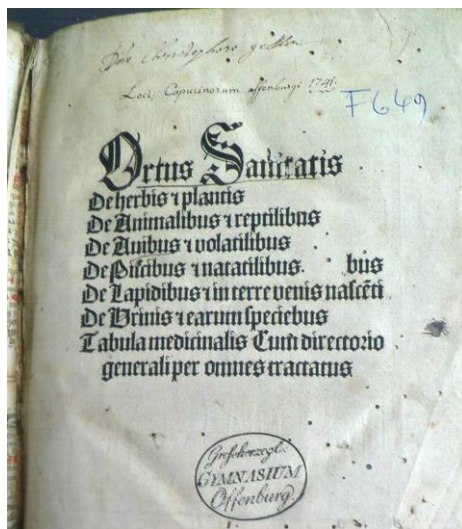 Loci Capucinorum offenburgi 1741.
F 649
Ortus Sanitatis
De herbis ⁊ plantis
De Animalibus ⁊ reptilibus
De Auibus ⁊ volatilibus
De Piscibus ⁊ natatilibus. bus
De Lapidibus ⁊ in terre venis nascēti
De Vrinis ⁊ earum speciebus
Tabula medicinalis Cum directorio
generali per omnes tractatus
Großherzogl.
GYMNASIUM
Offenburg.